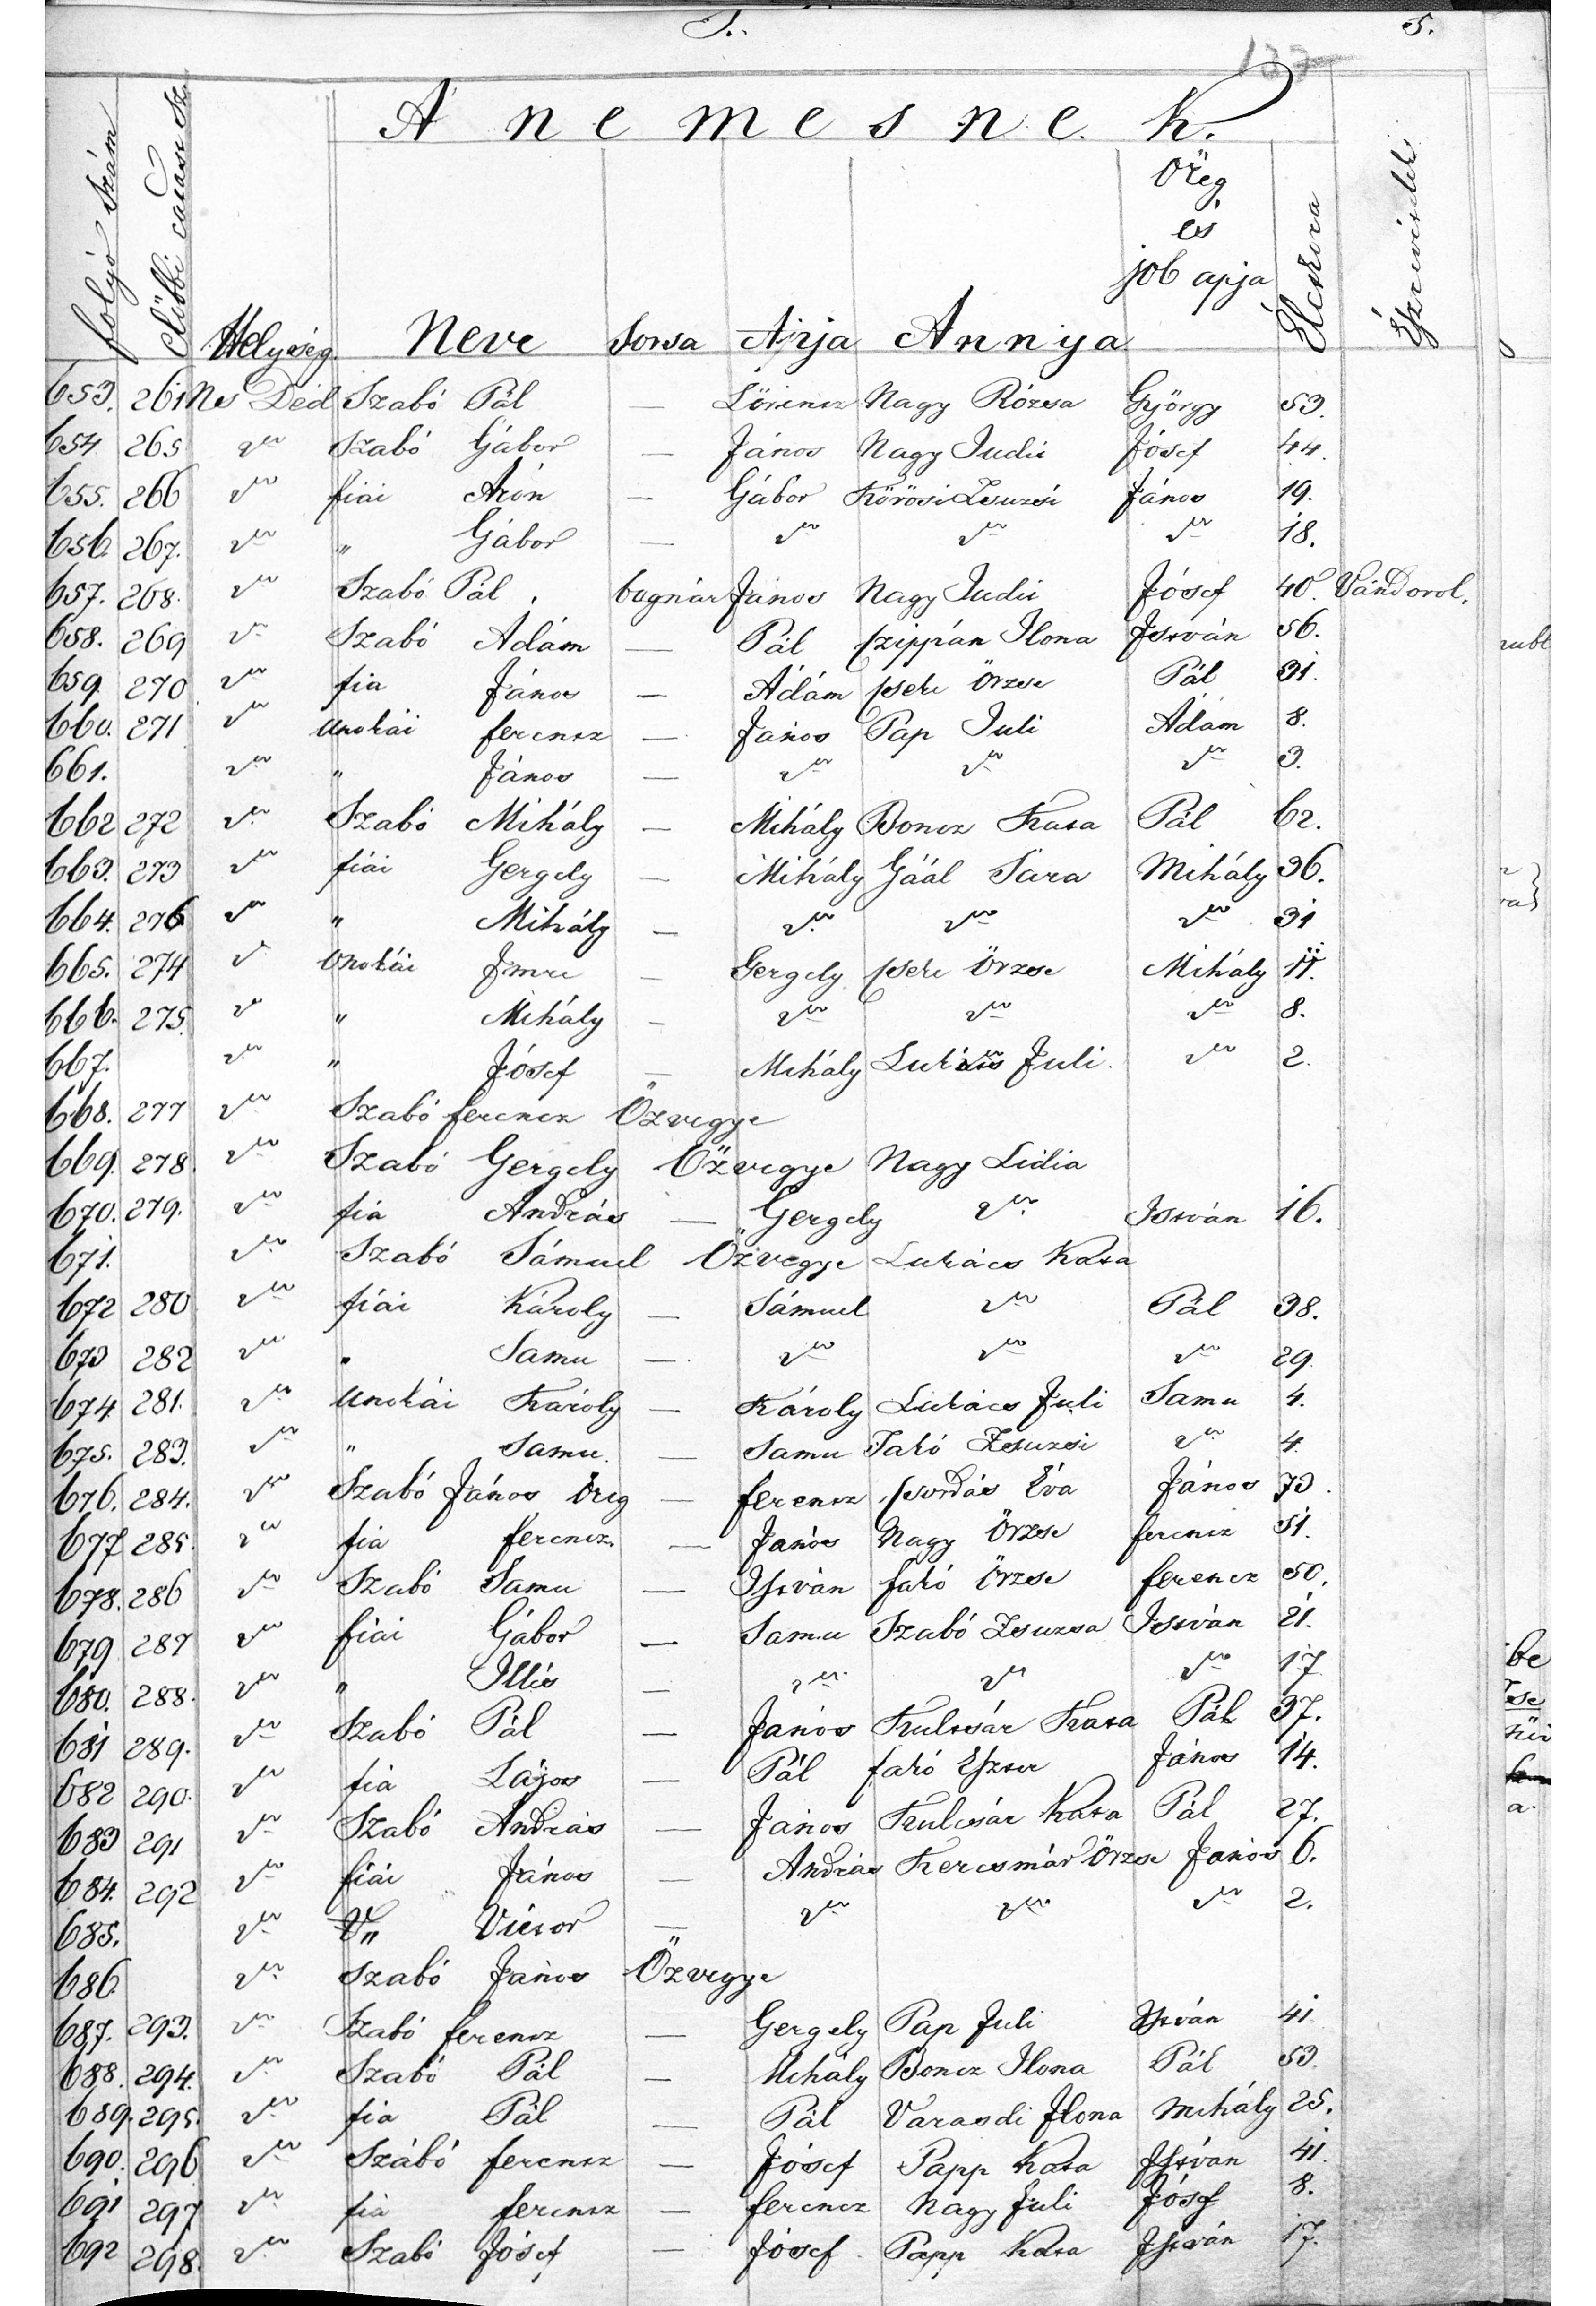 S. 5.
133
A nemesnek.
folyó szám
előbbi család sz.
Helység Neve Sorsa Apja Annya Öreg és job apja Életkora Észrevétel
653. 261 Ns Déd Szabó Pál — Lörincz Nagy Rózsa György 53.
654 265 " Szabó Gábor — János Nagy Judit Jósef 44.
655. 266 " fiai Áron — Gábor Körösi Zsuzsi János 19.
656. 267. " " Gábor — " " " 18.
657. 268. " Szabó Pál. bognár János Nagy Judit Jósef 40. Vándorol.
658. 269 " Szabó Ádám — Pál Czippán Ilona István 56.
659. 270 " fia János — Ádám Cseke Örzse Pál 31.
660. 271 " unokái ferencz — János Pap Juli Ádám 8.
661. " " János — " " " 3.
662 272 " Szabó Mihály — Mihály Boncz Kata Pál 62.
663. 273 " fiai Gergely — Mihály Gáál Sára Mihály 36.
664. 276 " " Mihály — " " " 31
665. 274 " Unokái Imre — Gergely Cseke Örzse Mihály 11.
666. 275. " " Mihály — " " " 8.
667. " " Jósef — Mihály Lukács Juli " 2.
668. 277 " Szabó ferencz Özvegye
669. 278. " Szabó Gergely Özvegye Nagy Lidia
670. 279. " fia András — Gergely " István 16.
671. " Szabó Sámuel Özvegye Lukács Kata
672 280 " fiai Károly — Sámuel " Pál 38.
673 282 " " Samu — " " " 29
674. 281. " unokái Károly — Károly Lukács Juli Samu 4.
675. 283. " " Samu. — Samu Jakó Zsuzsi " 4.
676. 284. " Szabó János öreg — ferencz Csordás Éva János 73.
677 285. " fia ferencz. — János Nagy Örzse ferencz 51.
678. 286 " Szabó Samu — István Jakó Örzse ferencz 50.
679 287 " fiai Gábor — Samu Szabó Zsuzsa István 21.
680. 288. " " Illés — " " " 17
681 289. " Szabó Pál — János Kulcsár Kata Pál 37.
682 290. " fia Lajos — Pál Jakó Eszter János 14.
683 291 " Szabó András — János Kulcsár Kata Pál 27.
684. 292 " fiai János — András Kercsmár Örzse János 6.
685. " " Victor — " " " 2.
686. " Szabó János Özvegye
687. 293. " Szabó ferencz — Gergely Pap Juli István 41
688. 294. " Szabó Pál — Mihály Boncz Ilona Pál 53.
689. 295. " fia Pál — Pál Varasdi Ilona Mihály 25.
690. 296 " Szábó ferencz — Jósef Papp Kata István 41.
691 297 " fia ferencz — ferencz Nagy Juli Jósef 8.
692 298. " Szabó Jósef — Jósef Papp Kata István 17.